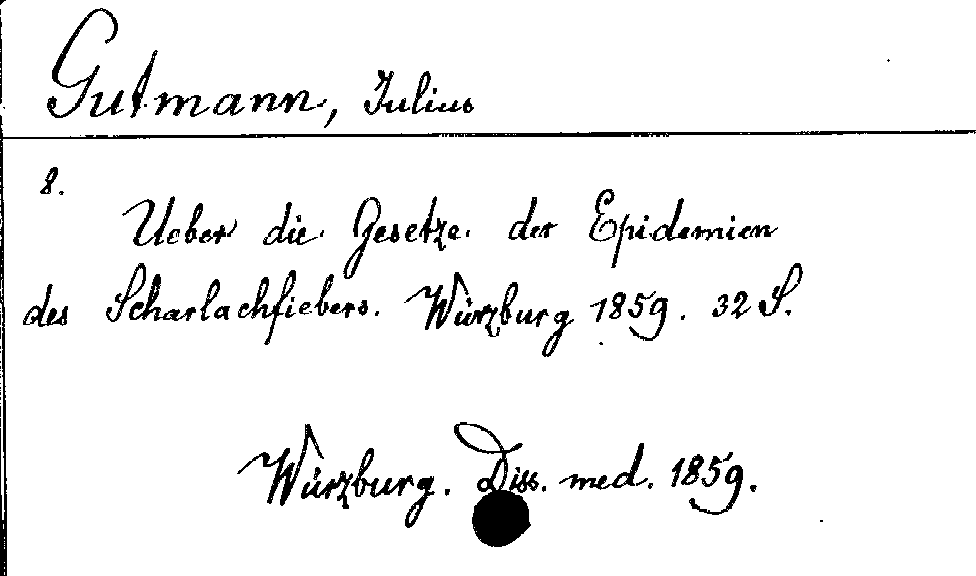 Gutmann, Julius
8.
Ueber die Gesetze der Epidemien
des Scharlachfiebers. Würzburg 1859. 32 S.
Würzburg. Diss. med. 1859.